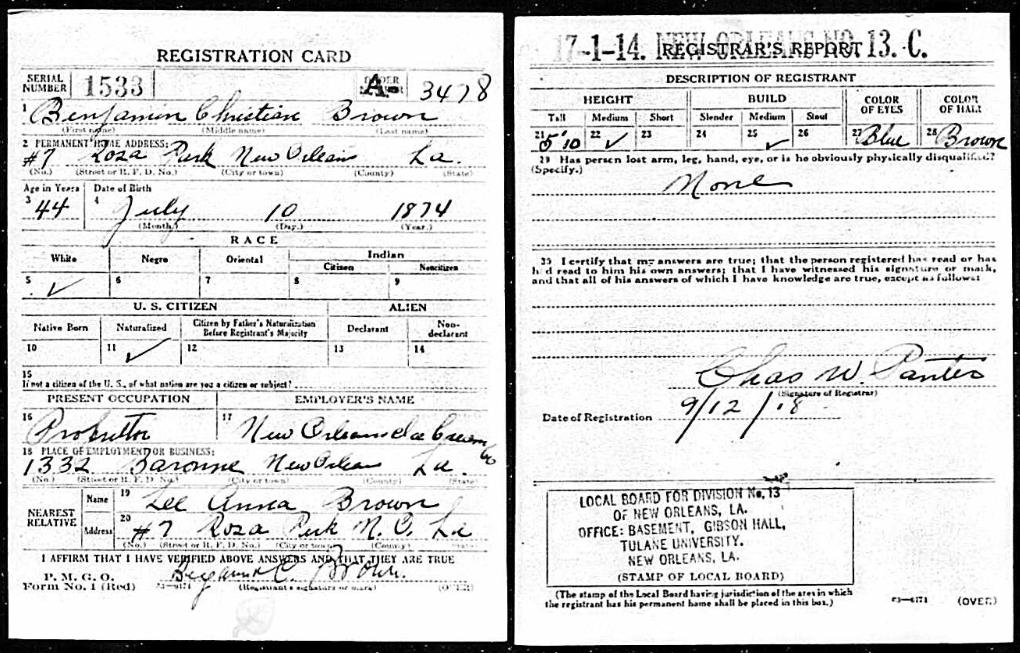 REGISTRATION CARD
SERIAL NUMBER 1533 A 3478
1 Benjamin Christian Brown
(First name) (Middle name) (Last name)
2 PERMANENT HOME ADDRESS:
#7 Rosa Park New Orleans La.
(No.) (Street or R. F. D. No.) (City or town) (County) (State)
Age in Years Date of Birth
3 44 4 July 10 1874
(Month.) (Day.) (Year.)
RACE
White Negro Oriental Indian
Citizen Noncitizen
5 ✓ 6 7 8 9
U. S. CITIZEN ALIEN
Native Born Naturalized Citizen by Father's Naturalization Before Registrant's Majority Declarant Non-declarant
10 11 ✓ 12 13 14
15
If not a citizen of the U. S., of what nation are you a citizen or subject?
PRESENT OCCUPATION EMPLOYER'S NAME
16 17 New Orleans Ice Cream Co
18 PLACE OF EMPLOYMENT OR BUSINESS:
1332 Baronne New Orleans La.
(No.) (Street or R. F. D. No.) (City or town) (County) (State)
NEAREST RELATIVE Name 19 Lee Anna Brown
Address 20 #7 Rosa Park N.O. La
(No.) (Street or R. F. D. No.) (City or town) (County) (State)
I AFFIRM THAT I HAVE VERIFIED ABOVE ANSWERS AND THAT THEY ARE TRUE
P. M. G. O.
Form No. 1 (Red) Benjamin C. Brown
(Registrant's signature or mark) (OVER)
17-1-14. NEW ORLEANS NO. 13. C.
REGISTRAR'S REPORT
DESCRIPTION OF REGISTRANT
HEIGHT BUILD COLOR OF EYES COLOR OF HAIR
Tall Medium Short Slender Medium Stout
21 5'10 22 ✓ 23 24 25 ✓ 26 27 Blue 28 Brown
29 Has person lost arm, leg, hand, eye, or is he obviously physically disqualified?
(Specify.)
None
30 I certify that my answers are true; that the person registered has read or has
had read to him his own answers; that I have witnessed his signature or mark,
and that all of his answers of which I have knowledge are true, except as follows:
Chas W.
(Signature of Registrar)
Date of Registration 9/12/18
LOCAL BOARD FOR DIVISION No. 13
OF NEW ORLEANS, LA.
OFFICE: BASEMENT, GIBSON HALL,
TULANE UNIVERSITY.
NEW ORLEANS, LA.
(STAMP OF LOCAL BOARD)
(The stamp of the Local Board having jurisdiction of the area in which
the registrant has his permanent home shall be placed in this box.)
(OVER)